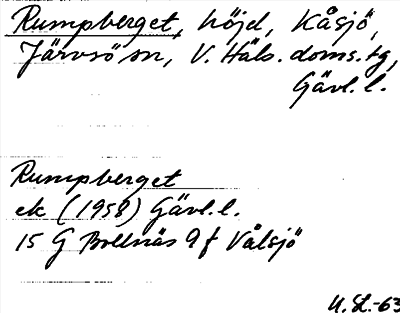 Rumpberget, höjd, Kåsjö,
Järvsö sn, V. Häls. doms. tg,
Gävl. l.
Rumpberget
ek (1958) Gävl. l.
15 G Bollnäs 9 f Vålsjö
U. L.-63